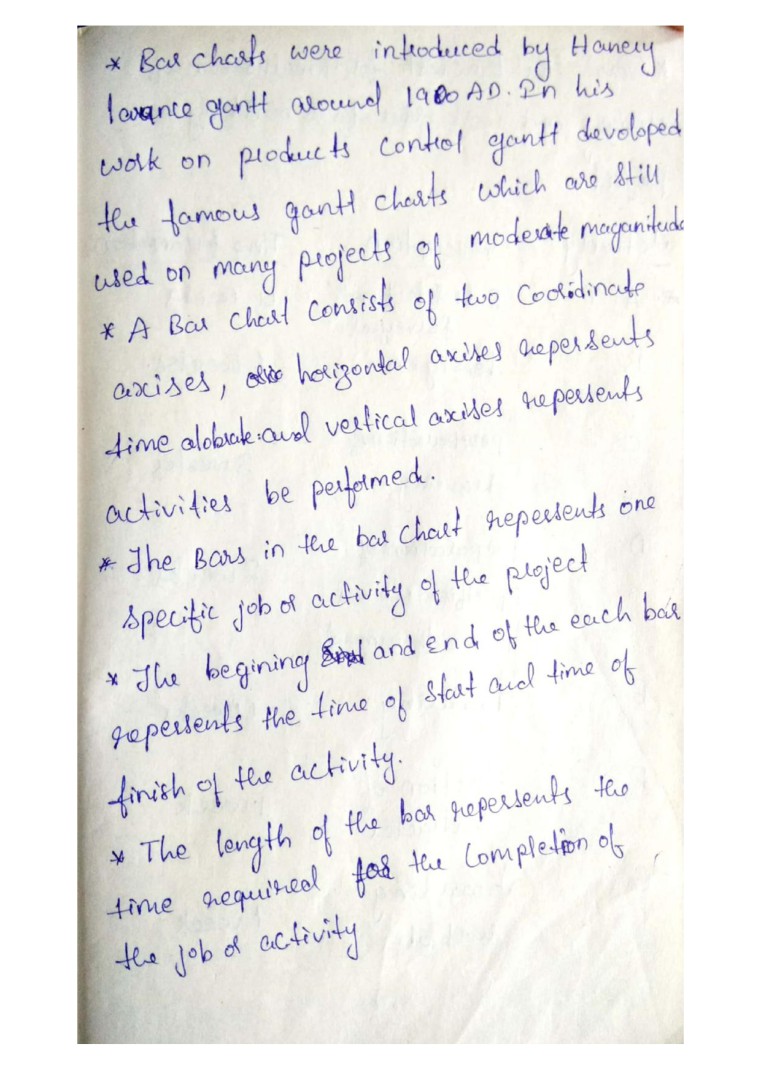 * Bar charts were introduced by Hanery
lavance gantt around 1900 AD. In his
work on products control gantt devoloped
the famous gantt charts which are still
used on many projects of moderate maganitude
* A Bar chart consists of two coordinate
axcises, horizontal axises repersents
time and vertical axises repersents
activities be performed.
* The Bars in the bar chart repersents one
specific job or activity of the project
* The begining and end of the each bar
repersents the time of start and time of
finish of the activity.
* The length of the bar repersents the
time required for the completion of
the job or activity